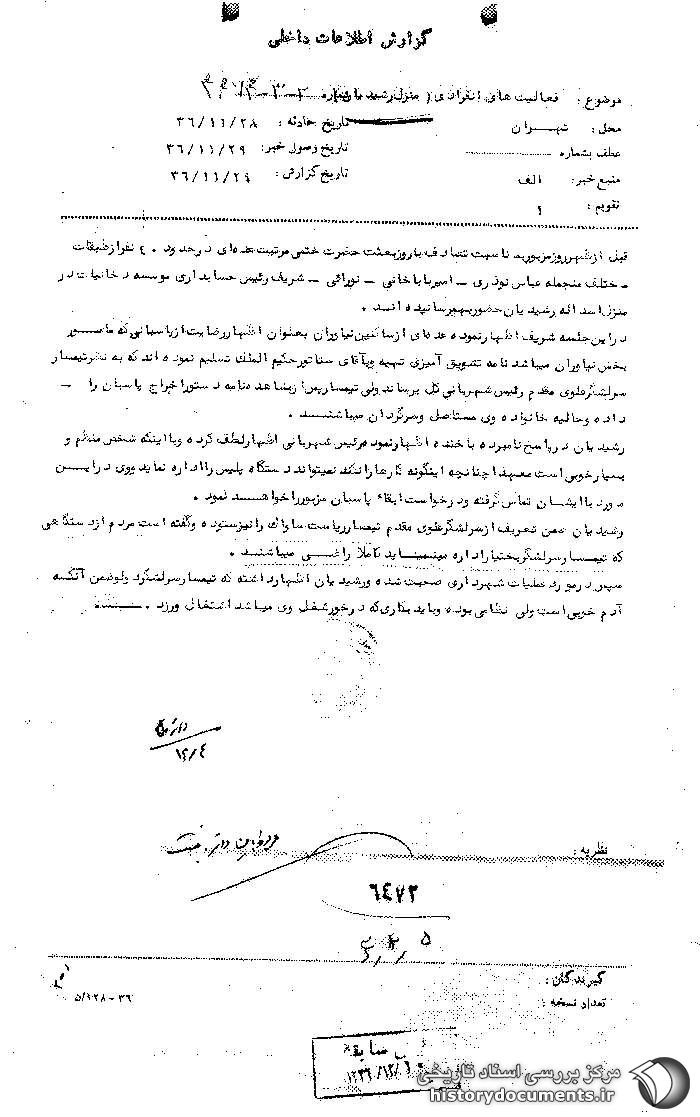 گزارش اطلاعات داخلی
موضوع : فعالیت های انفرادی ( منزل رشیدیان )
محل : تهران
تاریخ حادثه : ۳۶/۱۱/۲۸
عطف بشماره
تاریخ وصول خبر: ۳۶/۱۱/۲۹
منبع خبر: الف
تاریخ گزارش: ۳۶/۱۱/۲۹
تقویم :
قبل از ظهر روز مزبور بمناسبت تصادف با روز بعثت حضرت ختمی مرتبت عده‌ای در حدود ۴۰ نفر از طبقات
مختلف منجمله عباس نوذری – امیر باباخانی – نورائی – شریف رئیس حسابداری موسسه دخانیات در
منزل اسداله رشیدیان حضور بهم رسانیده اند .
در این جلسه شریف اظهار نموده عده‌ای از ساکنین نیاوران بعنوان اظهار رضایت از پاسبانی که مامور
بخش نیاوران میباشد نامه تشویق آمیزی تهیه و بآقای سناتور حکیم الملک تسلیم نموده اند که به نظر تیمسار
سرلشگر علوی مقدم رئیس شهربانی کل برساند ولی تیمسار پس از مشاهده نامه دستور اخراج پاسبان را –
داده و حالیه خانواده وی مستاصل و سرگردان میباشند .
رشیدیان در پاسخ نامبرده با خنده اظهار نموده رئیس شهربانی اظهار لطف کرده و با اینکه شخص منظم و
بسیار خوبی است معهذا چنانچه اینگونه کارها را نکند نمیتواند دستگاه پلیس را اداره نماید و وی در این
مورد با ایشان تماس گرفته و درخواست ابقاء پاسبان مزبور را خواهند نمود .
رشیدیان ضمن تعریف از سرلشگر علوی مقدم تیمسار ریاست ساواک را نیز ستوده و گفته است مردم از دستگاهی
که تیمسار سرلشگر بختیار اداره مینماید کاملا راضی میباشند .
سپس در مورد عملیات شهرداری صحبت شده و رشیدیان اظهار داشته که تیمسار سرلشگر ضمن آنکه
آدم خوبی است ولی نظامی بوده و باید بکاری که در خور شغل وی میباشد اشتغال ورزد .
۱۲/۴
نظریه :
۶۴۷۲
گیرندگان :
تعداد نسخه :
۵/۱۲۸-۳۶
سابقه
مرکز بررسی اسناد تاریخی
historydocuments.ir